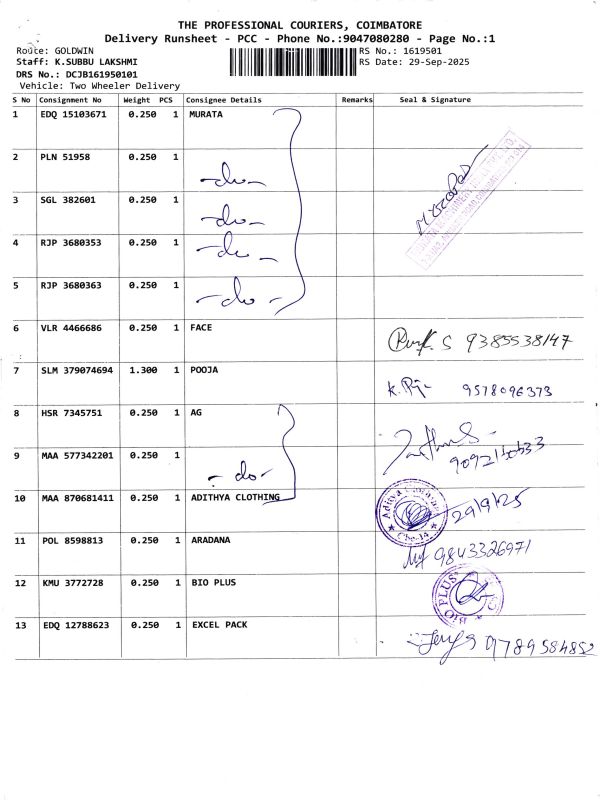 THE PROFESSIONAL COURIERS, COIMBATORE
Delivery Runsheet - PCC - Phone No.:9047080280 - Page No.:1
Route: GOLDWIN
RS No.: 1619501
Staff: K.SUBBU LAKSHMI
RS Date: 29-Sep-2025
DRS No.: DCJB161950101
Vehicle: Two Wheeler Delivery
S No Consignment No Weight PCS Consignee Details Remarks Seal & Signature
1 EDQ 15103671 0.250 1 MURATA
2 PLN 51958 0.250 1 -do-
3 SGL 382601 0.250 1 -do-
4 RJP 3680353 0.250 1 -do-
5 RJP 3680363 0.250 1 -do-
6 VLR 4466686 0.250 1 FACE 9385538147
7 SLM 379074694 1.300 1 POOJA 9578096373
8 HSR 7345751 0.250 1 AG
9 MAA 577342201 0.250 1 -do-
10 MAA 870681411 0.250 1 ADITHYA CLOTHING 29/9/25
11 POL 8598813 0.250 1 ARADANA 9843326971
12 KMU 3772728 0.250 1 BIO PLUS BIO PLUS
13 EDQ 12788623 0.250 1 EXCEL PACK 9789584852